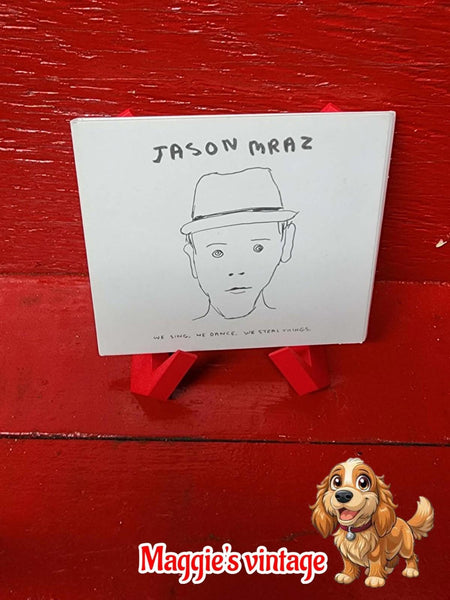 JASON MRAZ
WE SING, WE DANCE, WE STEAL THINGS.
Maggie's vintage